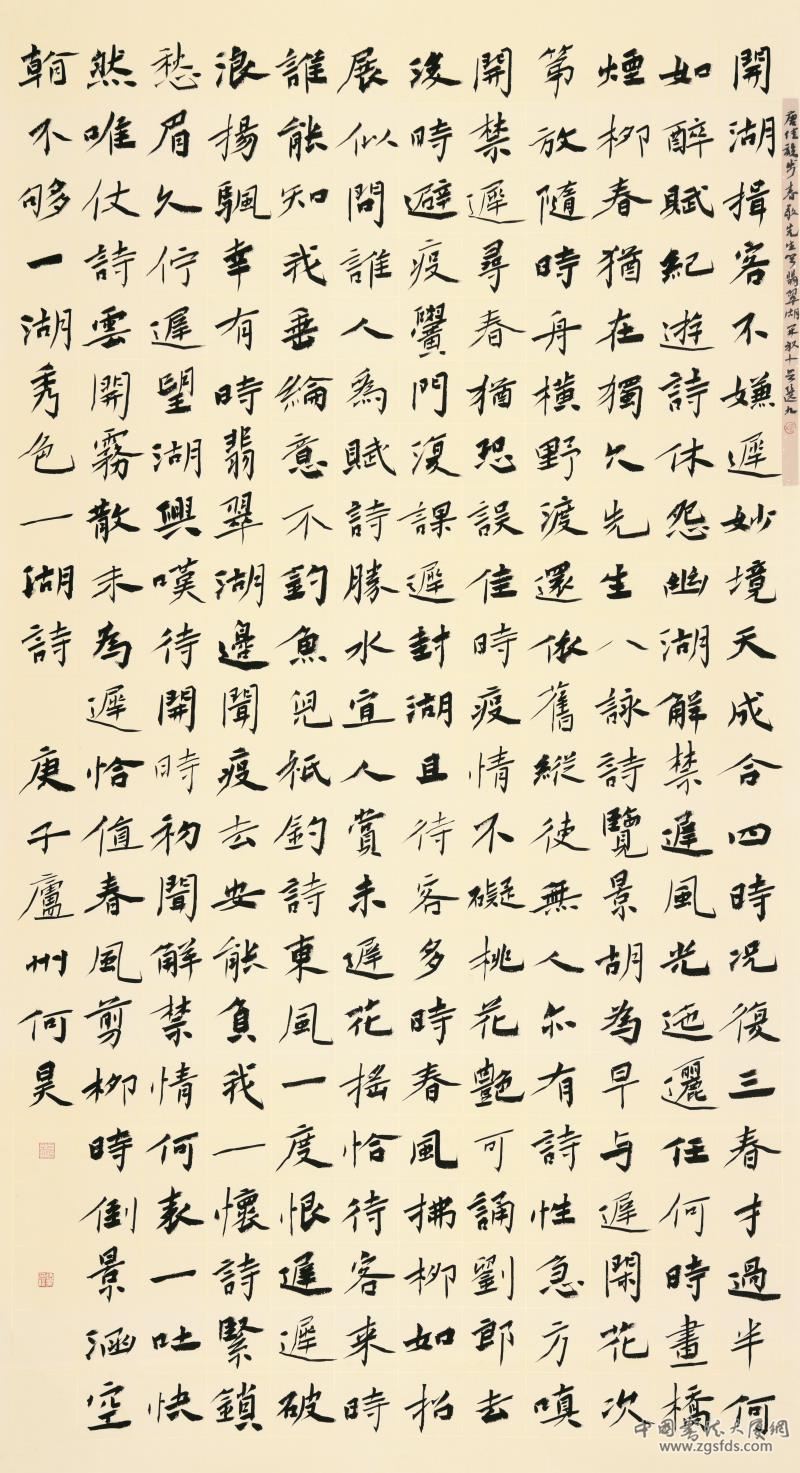 步春敬先生翡翠湖
開湖揖客不嫌遲妙境天成合四時況復三春才過半何
如醉賦紀遊詩休怨幽湖解禁遲風光迤邐任何時畫橋
煙柳春猶在獨欠先生八詠詩覽景胡為早与遲閑花次
第放隨時舟橫野渡還依舊縱使無人尔有詩性急方嗔
開禁遲尋春猶恐誤佳時疫情不礙桃花艷可誦劉郎去
後時避疫黌門復課遲封湖且待客多時春風拂柳如招
展似問誰人為賦詩勝水宜人賞未遲花搖恰待客来時
誰能知我垂綸意不釣魚兒衹釣詩東風一度恨遲遲破
浪揚颿幸有時翡翠湖邊聞疫去安能負我一懷詩緊鎖
愁眉久佇遲望湖興嘆待開時初聞解禁情何表一吐快
然唯仗詩雲開霧散未為遲恰值春風剪柳時倒景涵空
翰不够一湖秀色一湖詩 庚子廬州何昊
www.zgsfds.com